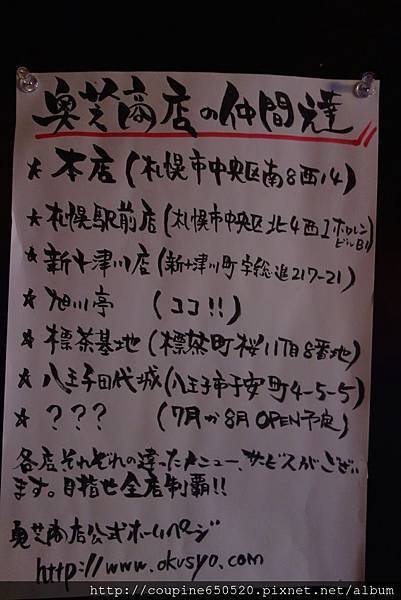 奥芝商店の仲間達
★本店(札幌市中央区南8西14)
★札幌駅前店(札幌市中央区北4西1ホクレンビルB1)
★新十津川店(新十津川町字総進217-21)
★旭川亭 (ココ!!)
★標茶基地(標茶町桜11丁目8番地)
★八王子田代城(八王子市子安町4-5-5)
★??? (7月か8月OPEN予定)
各店それぞれの違ったメニュー、サービスがござい
ます。目指せ全店制覇!!
奥芝商店公式ホームページ
http://www.okusyo.com
http://coupine650520.pixnet.net/album